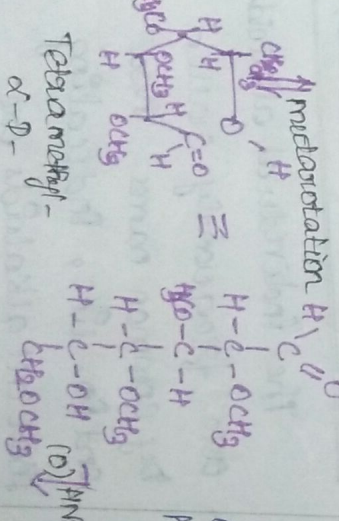 mutarotation
H
O
C
CH2
OCH3
H
O
H
H3CO
H
C=O
OCH3
H
H
H
OCH3
≡
H-C-OCH3
H3CO-C-H
H-C-OCH3
H-C-OH
CH2OCH3
(O)
HN
Tetramethyl-
α-D-